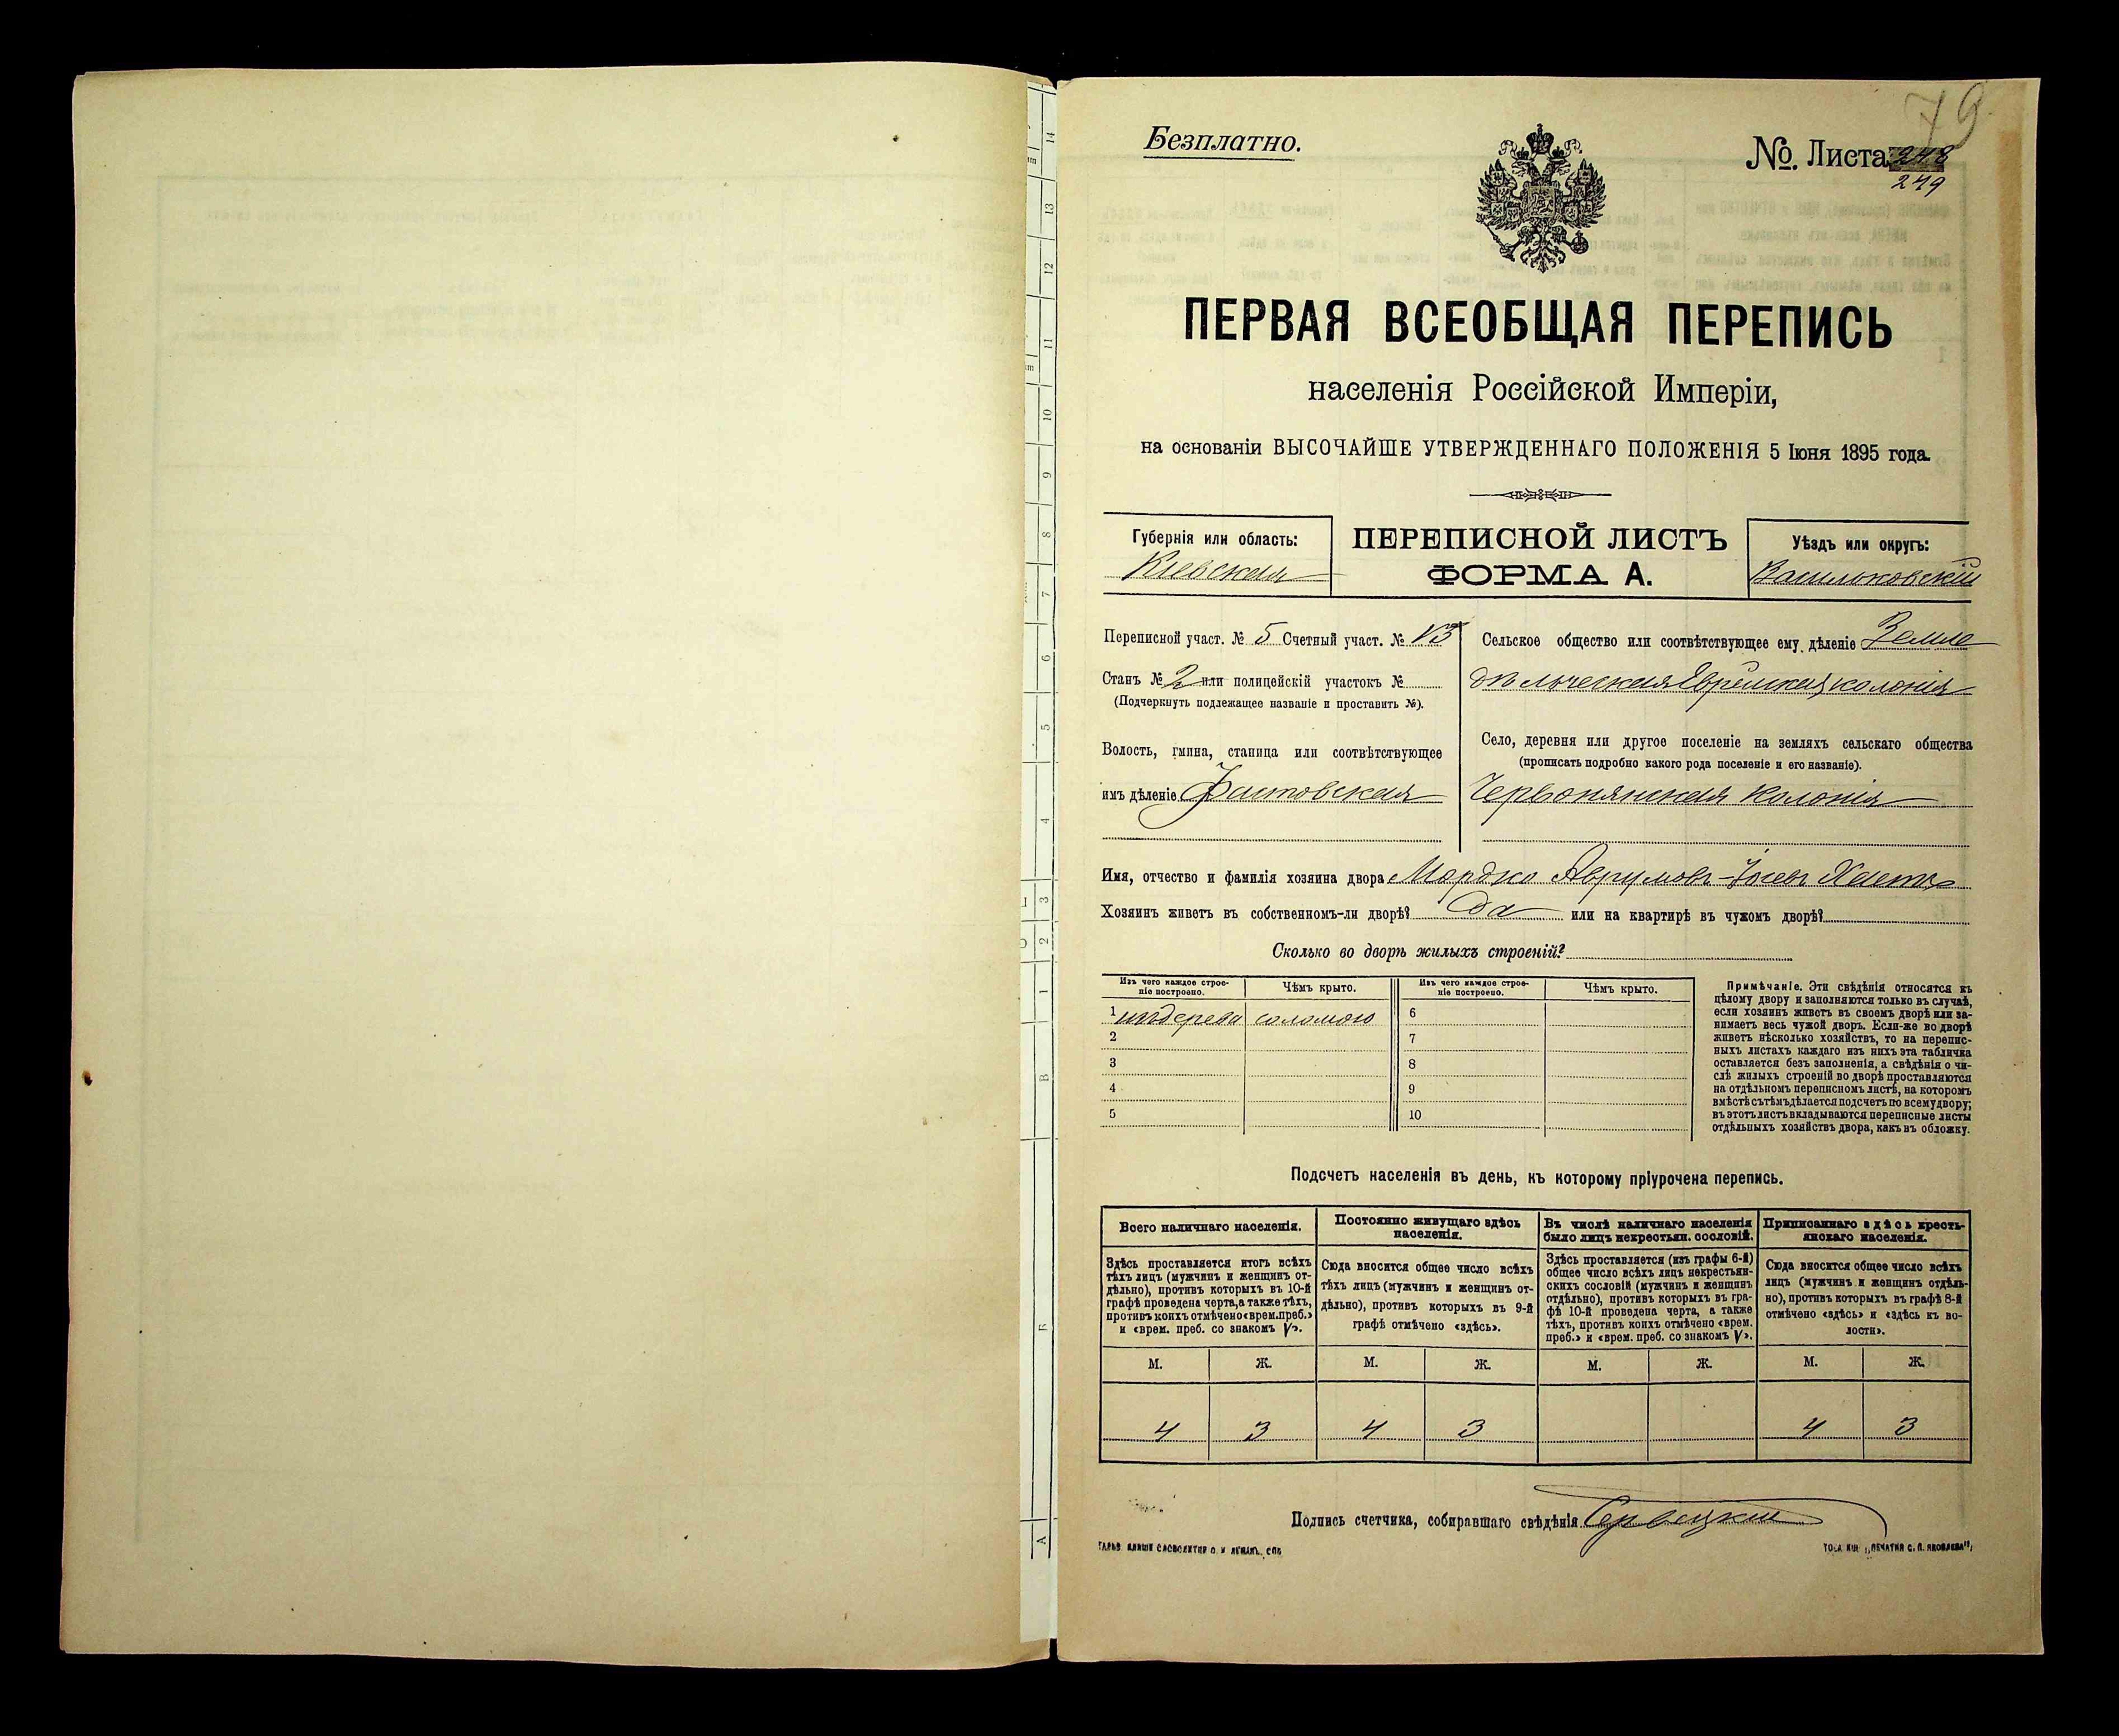 79
Безплатно.
№. Листа 248
249
ПЕРВАЯ ВСЕОБЩАЯ ПЕРЕПИСЬ
населенія Россійской Имперіи,
на основаніи ВЫСОЧАЙШЕ УТВЕРЖДЕННАГО ПОЛОЖЕНІЯ 5 Іюня 1895 года.
Губернія или область:
Кіевская
ПЕРЕПИСНОЙ ЛИСТЪ
ФОРМА А.
Уѣздъ или округъ:
Васильковскій
Переписной участ. № 5 Счетный участ. №
Станъ № 2 или полицейскій участокъ №
(Подчеркнуть подлежащее названіе и проставить №).
Волость, гмина, станица или соотвѣтствующее
имъ дѣленіе Фастовская
Сельское общество или соотвѣтствующее ему дѣленіе Земле
дѣльческая Еврейская колонія
Село, деревня или другое поселеніе на земляхъ сельскаго общества
(прописать подробно какого рода поселеніе и его названіе).
Червонянская колонія
Имя, отчество и фамилія хозяина двора Мордко Аврумовъ-Іосевъ
Хозяинъ живетъ въ собственномъ-ли дворѣ? Да или на квартирѣ въ чужомъ дворѣ?
Сколько во дворѣ жилыхъ строеній?
Изъ чего каждое строе-
ніе построено.
Чѣмъ крыто.
Изъ чего каждое строе-
ніе построено.
Чѣмъ крыто.
1 издерева соломою 6
2 7
3 8
4 9
5 10
Примѣчаніе. Эти свѣдѣнія относятся къ
цѣлому двору и заполняются только въ случаѣ,
если хозяинъ живетъ въ своемъ дворѣ или за-
нимаетъ весь чужой дворъ. Если-же во дворѣ
живетъ нѣсколько хозяйствъ, то на перепис-
ныхъ листахъ каждаго изъ нихъ эта табличка
оставляется безъ заполненія, а свѣдѣнія о чи-
слѣ жилыхъ строеній во дворѣ проставляются
на отдѣльномъ переписномъ листѣ, на которомъ
вмѣстѣ съ тѣмъ дѣлается подсчетъ по всему двору;
въ этотъ листъ вкладываются переписные листы
отдѣльныхъ хозяйствъ двора, какъ въ обложку.
Подсчетъ населенія въ день, къ которому пріурочена перепись.
Всего наличнаго населенія.
Здѣсь проставляется итогъ всѣхъ
тѣхъ лицъ (мужчинъ и женщинъ от-
дѣльно), противъ которыхъ въ 10-й
графѣ проведена черта, а также тѣхъ,
противъ коихъ отмѣчено «врем. преб.»
и «врем. преб. со знакомъ V».
Постоянно живущаго здѣсь
населенія.
Сюда вносится общее число всѣхъ
тѣхъ лицъ (мужчинъ и женщинъ от-
дѣльно), противъ которыхъ въ 9-й
графѣ отмѣчено «здѣсь».
Въ числѣ наличнаго населенія
было лицъ некрестьян. сословій.
Здѣсь проставляется (изъ графы 6-й)
общее число всѣхъ лицъ некрестьян-
скихъ сословій (мужчинъ и женщинъ
отдѣльно), противъ которыхъ въ гра-
фѣ 10-й проведена черта, а также
тѣхъ, противъ коихъ отмѣчено «врем.
преб.» и «врем. преб. со знакомъ V».
Приписаннаго здѣсь кресть-
янскаго населенія.
Сюда вносится общее число всѣхъ
лицъ (мужчинъ и женщинъ отдѣль-
но), противъ которыхъ въ графѣ 8-й
отмѣчено «здѣсь» и «здѣсь къ во-
лости».
М. Ж. М. Ж. М. Ж. М. Ж.
4 3 4 3 4 3
Подпись счетчика, собиравшаго свѣдѣнія